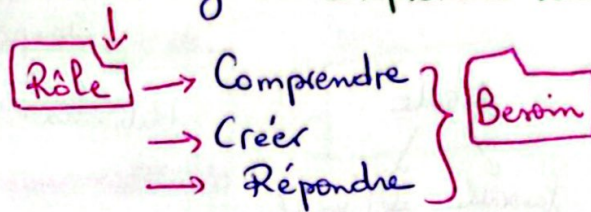 Rôle → Comprendre
→ Créer
→ Répondre
Besoin